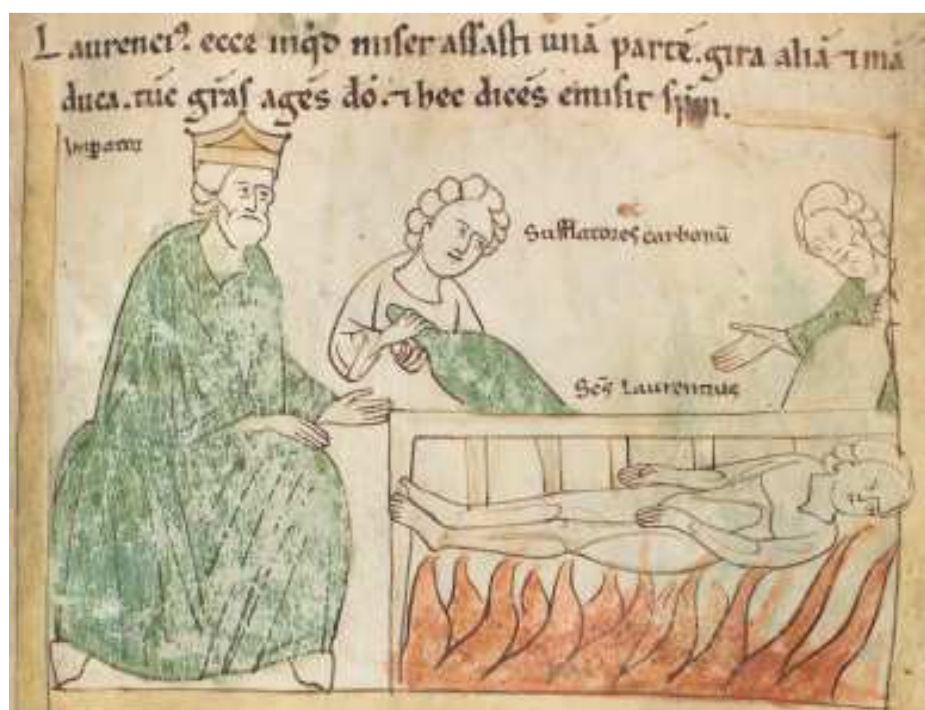 Laurenci⁹. ecce inq̇d miser assasti unā partē. gira aliā ⁊ mā
duca. tūc grās agēs dō. ⁊ hec dicēs emisit sp̄m.
Inpator
Sufflatores carbonū
Scs̄ Laurentius